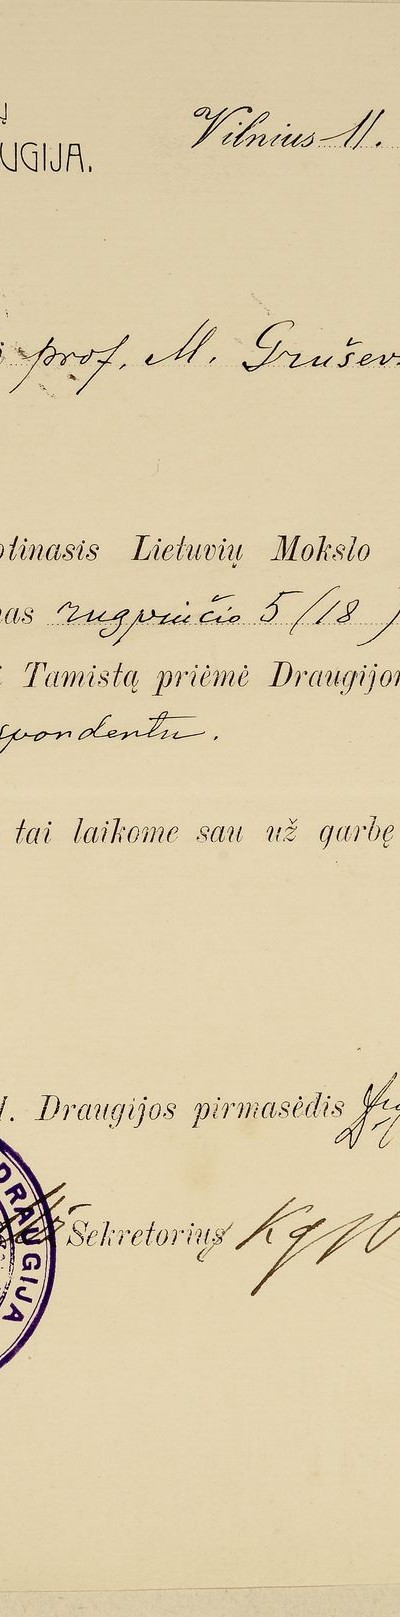 Ų
UGIJA.
Vilnius 11.
prof. M. Grušev
otinasis Lietuvių Mokslo
nas rugpiučio 5 (18)
i Tamistą priėmė Draugijon
spondentu.
tai laikome sau už garbę
M. Draugijos pirmasėdis
DRAUGIJA
Sekretorius